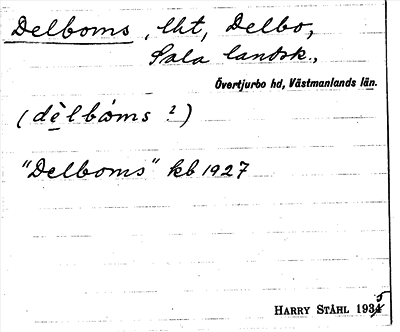 Delboms, lht, Delbo,
Sala landsk.,
Övertjurbo hd, Västmanlands län.
(dèlbo͡ms ?)
"Delboms" kb 1927
HARRY STÅHL 1935